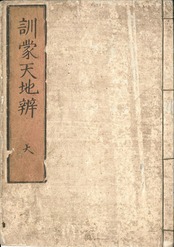 訓蒙天地辨
大